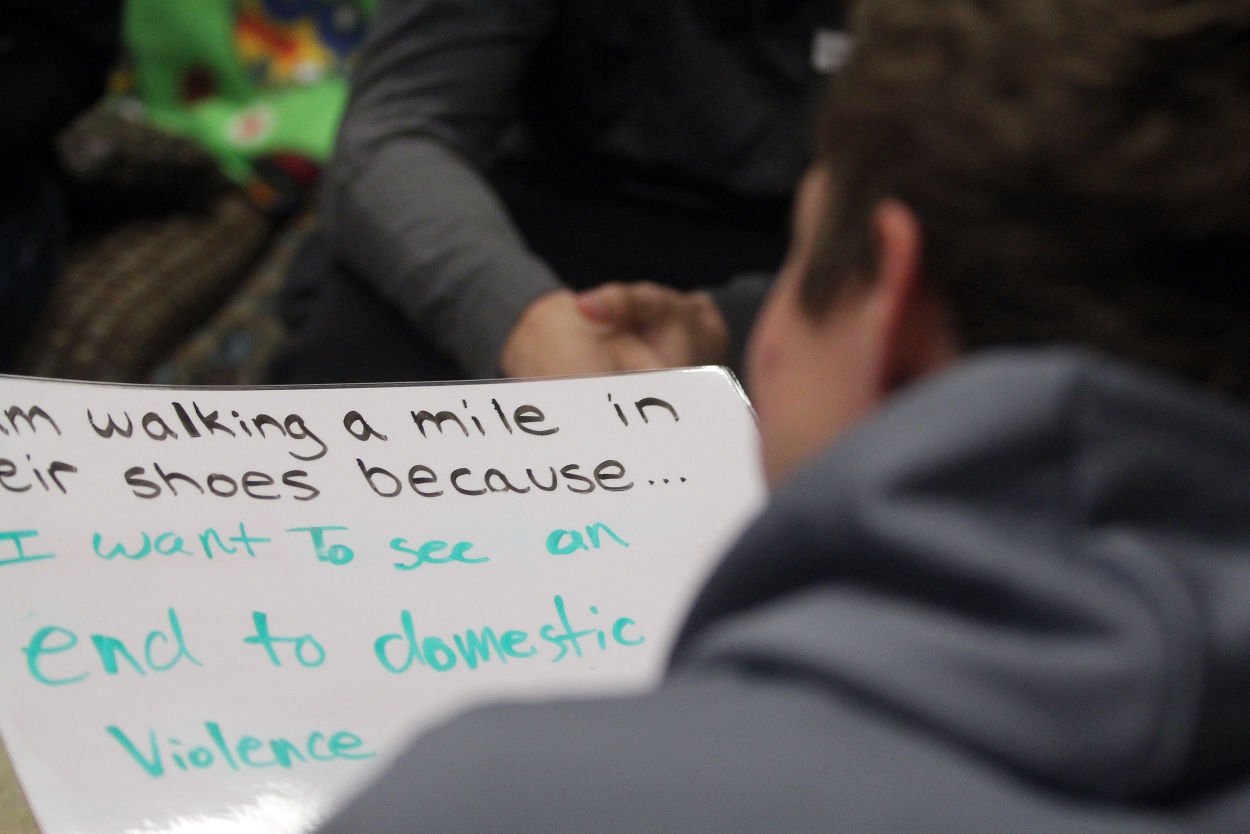 am walking a mile in
eir shoes because...
I want To see an
end to domestic
Violence